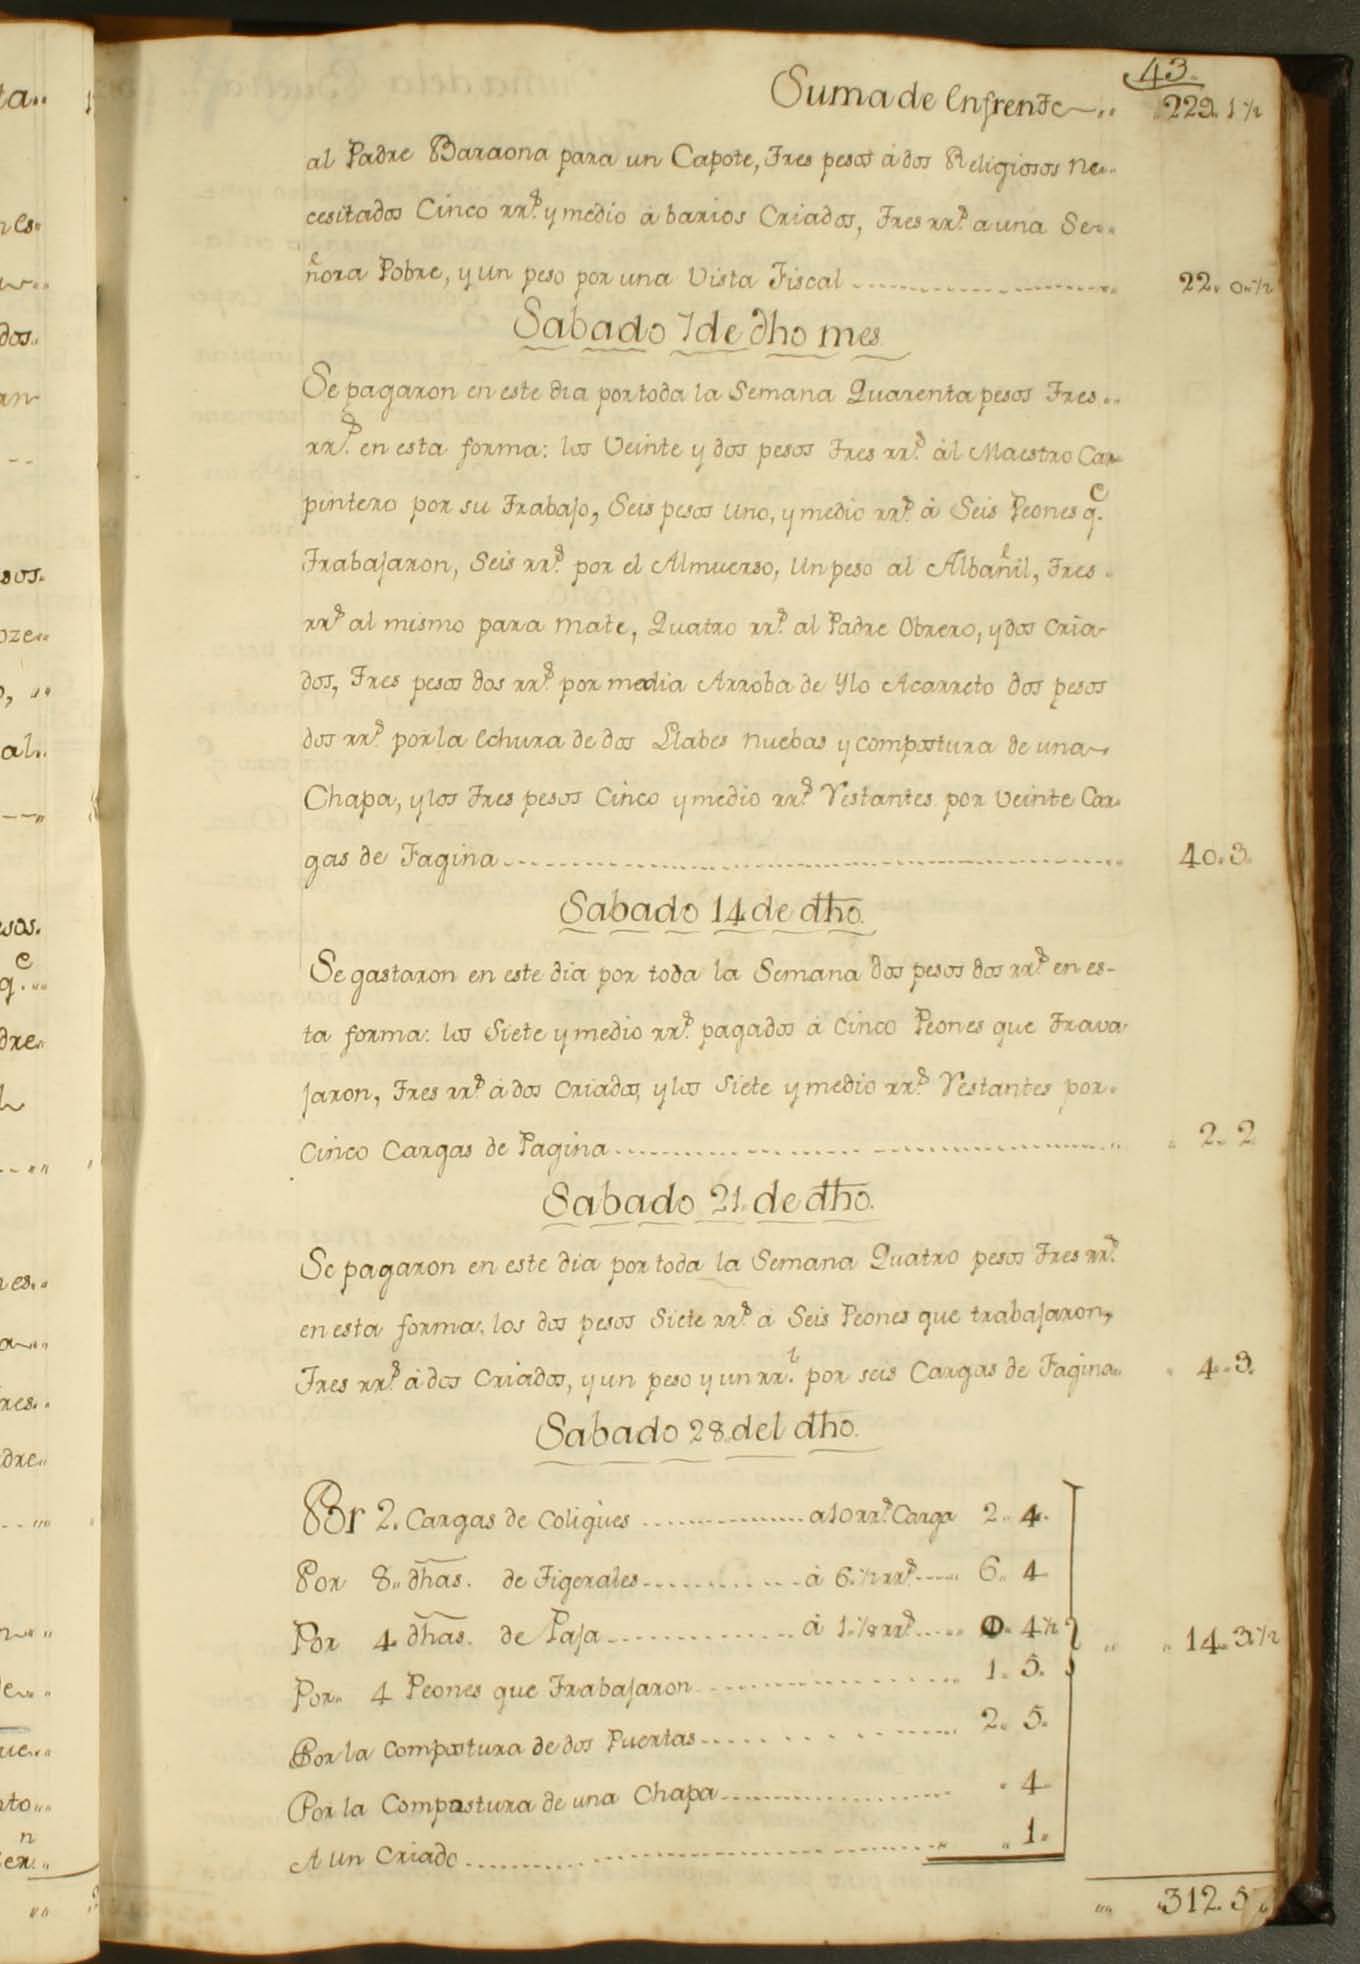 43.
Suma de Enfrente.. 229. 1 1/2
al Padre Baraona para un Capote, Tres pesos á dos Religiosos Ne..
cesitados Cinco rr.s y medio á barios Criados, Tres rr.s a una Se..
ñora Pobre, y un peso por una Vista Fiscal 22. 0. 1/2
Sabado 7 de dho mes
Se pagaron en este dia por toda la Semana Quarenta pesos Tres..
rr.s en esta forma: los Veinte y dos pesos Tres rr.s ál Maestro Car
pintero por su Trabajo, Seis pesos uno, y medio rr.s á Seis Peones q.e
Trabajaron, Seis rr.s por el Almuerso, Un peso al Albañil, Tres.
rr.s al mismo para mate, Quatro rr.s al Padre Obrero, y dos Cria
dos, Tres pesos dos rr.s por media Arroba de Ylo Acarreto dos pesos
dos rr.s por la Echura de dos Llabes nuebas y compostura de una
Chapa, y los Tres pesos Cinco y medio rr.s Restantes por Veinte Car.
gas de Fagina 40. 3.
Sabado 14 de dho.
Se gastaron en este dia por toda la Semana dos pesos dos rr.s en es-
ta forma: los Siete y medio rr.s pagados á Cinco Peones que Trava
jaron, Tres rr.s á dos Criados, y los Siete y medio rr.s Restantes por.
Cinco Cargas de Fagina 2. 2
Sabado 21. de dho.
Se pagaron en este dia por toda la Semana Quatro pesos Tres rr.s
en esta forma. los dos pesos Siete rr.s á Seis Peones que trabajaron,
Tres rr.s á dos Criados, y un peso y un rr.l por seis Cargas de Fagina.. 4.. 3.
Sabado 28. del dho.
Por 2. Cargas de Coligùes a 10 rr.s Carga 2.. 4.
Por 8.. dhas. de Tigerales á 6. 1/2 rr.s 6. 4
Por 4 dhas. de Paja á 1. 1/8 rr.s 0. 4 1/2 14. 3 1/2
Por.. 4 Peones que Trabajaron 1. 5.
Por la Compostura de dos Puertas 2. 5.
Por la Compostura de una Chapa 4
A un Criado 1.
312. 5